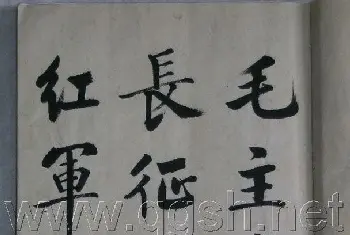 毛主
長征
紅軍
www.ggsh.net